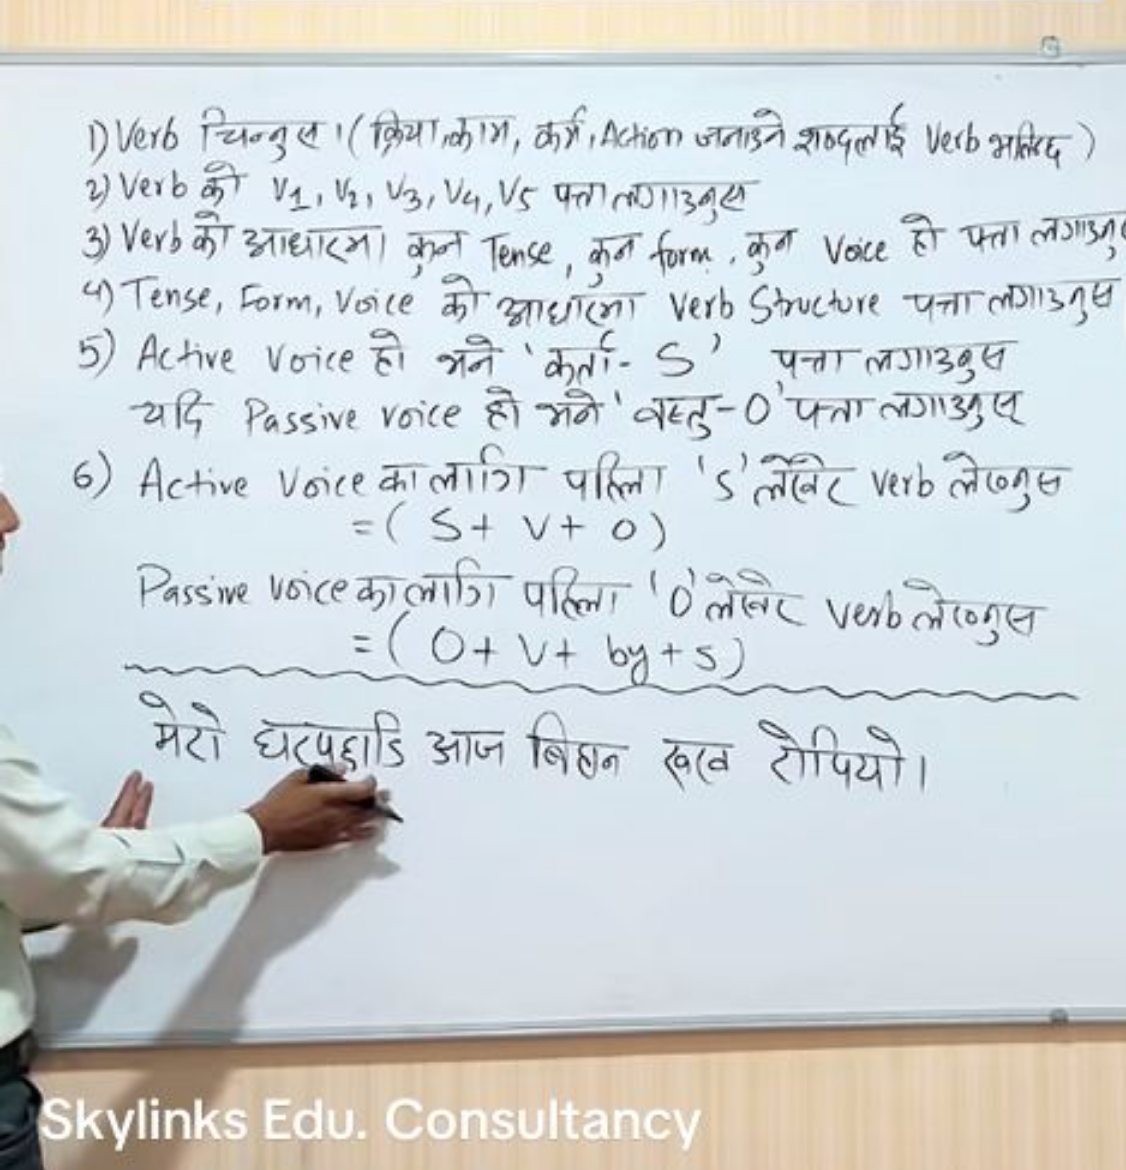 1) Verb चिन्नुस । ( क्रिया, काम, कर्म, Action जनाउने शब्दलाई Verb भनिन्छ )
2) Verb को V1, V2, V3, V4, V5 पत्ता लगाउनुस
3) Verb को आधारमा कुन Tense, कुन form, कुन Voice हो पत्ता लगाउनु
4) Tense, Form, Voice को आधारमा Verb Structure पत्ता लगाउनुस
5) Active Voice हो भने 'कर्ता- S' पत्ता लगाउनुस
यदि Passive voice हो भने 'वस्तु-O' पत्ता लगाउनुस्
6) Active Voice का लागि पहिला 'S' लेखेर verb लेख्नुस
= ( S + V + O )
Passive voice का लागि पहिला 'O' लेखेर verb लेख्नुस
= ( O + V + by + s )
मेरो घरपछाडि आज बिहान रुख रोपियो ।
Skylinks Edu. Consultancy